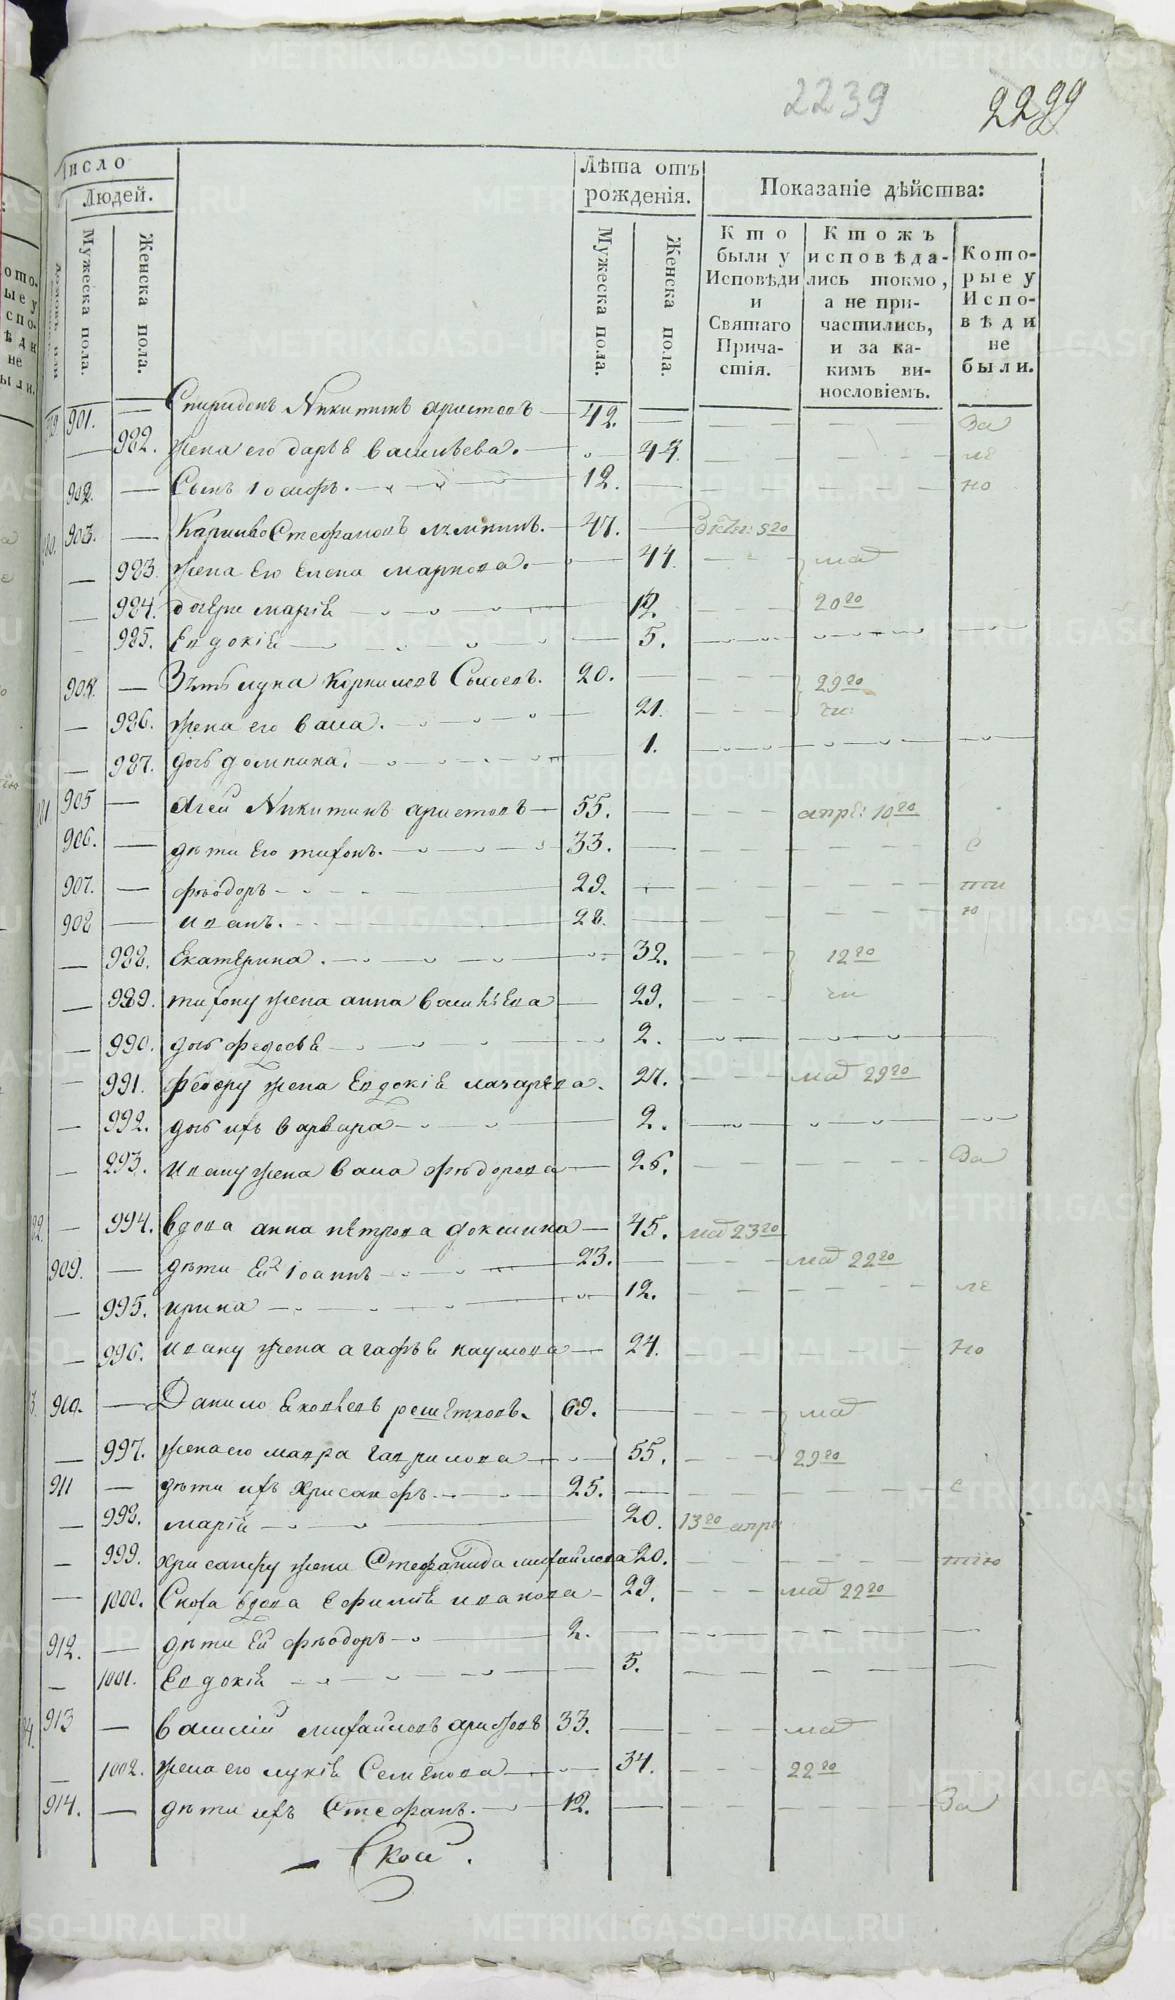 2239
2299
Число
Людей.
Мужеска пола.
Женска пола.
Лѣта отъ рожденія.
Мужеска пола.
Женска пола.
Показаніе дѣйства:
Кто были у Исповѣди и Святаго Причастія.
Ктожъ исповѣдались токмо, а не причастились, и за какимъ винословіемъ.
Которые у Исповѣди не были.
901. — Спиридонъ Никитинъ аристовъ — 42. — За
— 982. жена его дарья васильева. 44. ле
902. — Сынъ Іосифъ. 12. — но
903. — Карпъ Стефановъ 47. —
— 983. жена Его Елена маркова. 44. маѣ
— 984. дочери марія 12. 20го
— 985. Евдокія 5.
904. — Зять лука Корниловъ Сысоевъ. 20. — 29го
— 986. жена его васа. 21. чи:
— 987. дочь домника. 1.
905 — Агей Никитинъ аристовъ — 55. — апрѣ: 10го
906. — дѣти Его тихонъ. 33. — с
907. — фѣодоръ 29. — ти
908 — иванъ. 28. — ю
— 988. Екатерина. 32. 12го
— 989. тихону жена анна васильева 29. чи
— 990. дочь федосья 2.
— 991. Федору жена Евдокія лазарева. 27. маѣ 29го
— 992. дочь ихъ варвара 2.
— 293. ивану жена васа фѣдорова 26. За
— 994. вдова анна пѣтрова докшина — 45. маѣ 23го
909. — дѣти Ея Іоаннъ 23. маѣ 22го
— 995. ирина 12. ле
— 996. ивану жена агафья наумова 24. но
910. — Данило Яковлевъ решетковъ. 69. — маѣ
— 997. жена его мавра гаврилова 55. 29го
911 — дѣти ихъ хрисанфъ 25. — с
— 998. марія 20. 13го апрѣ
— 999. хрисанфу жена Стефанида михайлова 20. тію
— 1000. Сноха вдова Ефимія иванова 29. маѣ 22го
912. — дѣти Ей фѣодоръ 2. —
— 1001. Евдокія 5.
913 — василій михайловъ аристовъ 33. — маѣ
— 1002. жена его лукія Семенова 34. 22го
914. — дѣти ихъ Стефанъ. 12. — За